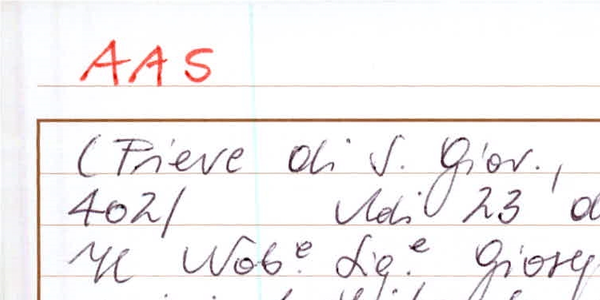 AAS
(Pieve di S. Giov.,
402/ Adi 23
Il Nob.e Sig.e Giosep